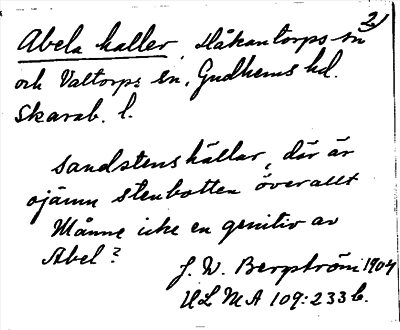 2)
Abela hallar, Håkantorps sn
och Valtorps sn, Gudhems hd.
Skarab. l.
Sandstenshällar, där är
ojämn stenbotten överallt
Månne icke en genitiv av
Abel?
J. W. Bergström 1904
ULMA 109:233 b.